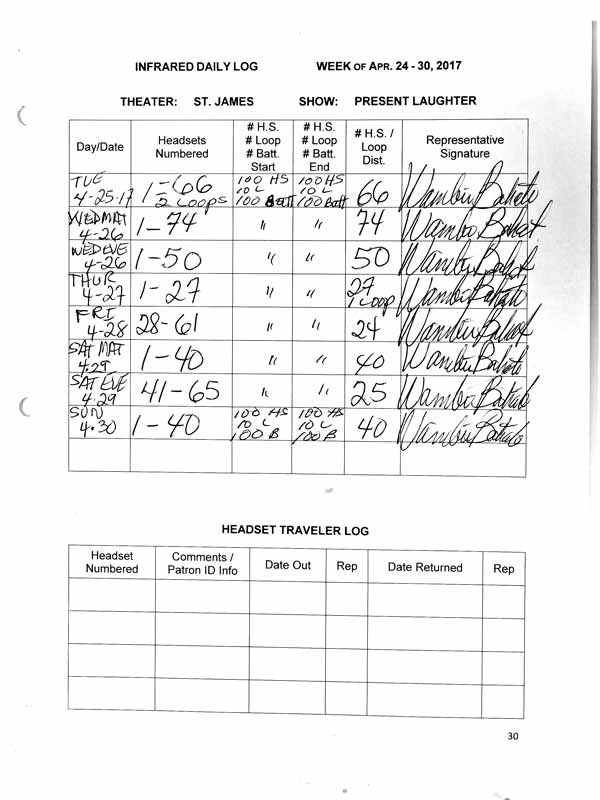 INFRARED DAILY LOG WEEK OF APR. 24 - 30, 2017
THEATER: ST. JAMES SHOW: PRESENT LAUGHTER
Day/Date Headsets Numbered # H.S. # Loop # Batt. Start # H.S. # Loop # Batt. End # H.S. / Loop Dist. Representative Signature
TUE 4-25-17 1-66 2 Loops 100 HS 10 L 100 Batt 100 HS 10 L 100 Batt 66
WED MAT 4-26 1-74 " " 74
WED EVE 4-26 1-50 " " 50
THUR 4-27 1-27 " " 27 1 Loop
FRI 4-28 28-61 " " 24
SAT MAT 4.29 1-40 " " 40
SAT EVE 4.29 41-65 " " 25
SUN 4.30 1-40 100 HS 10 L 100 B 100 HS 10 L 100 B 40
HEADSET TRAVELER LOG
Headset Numbered Comments / Patron ID Info Date Out Rep Date Returned Rep
30